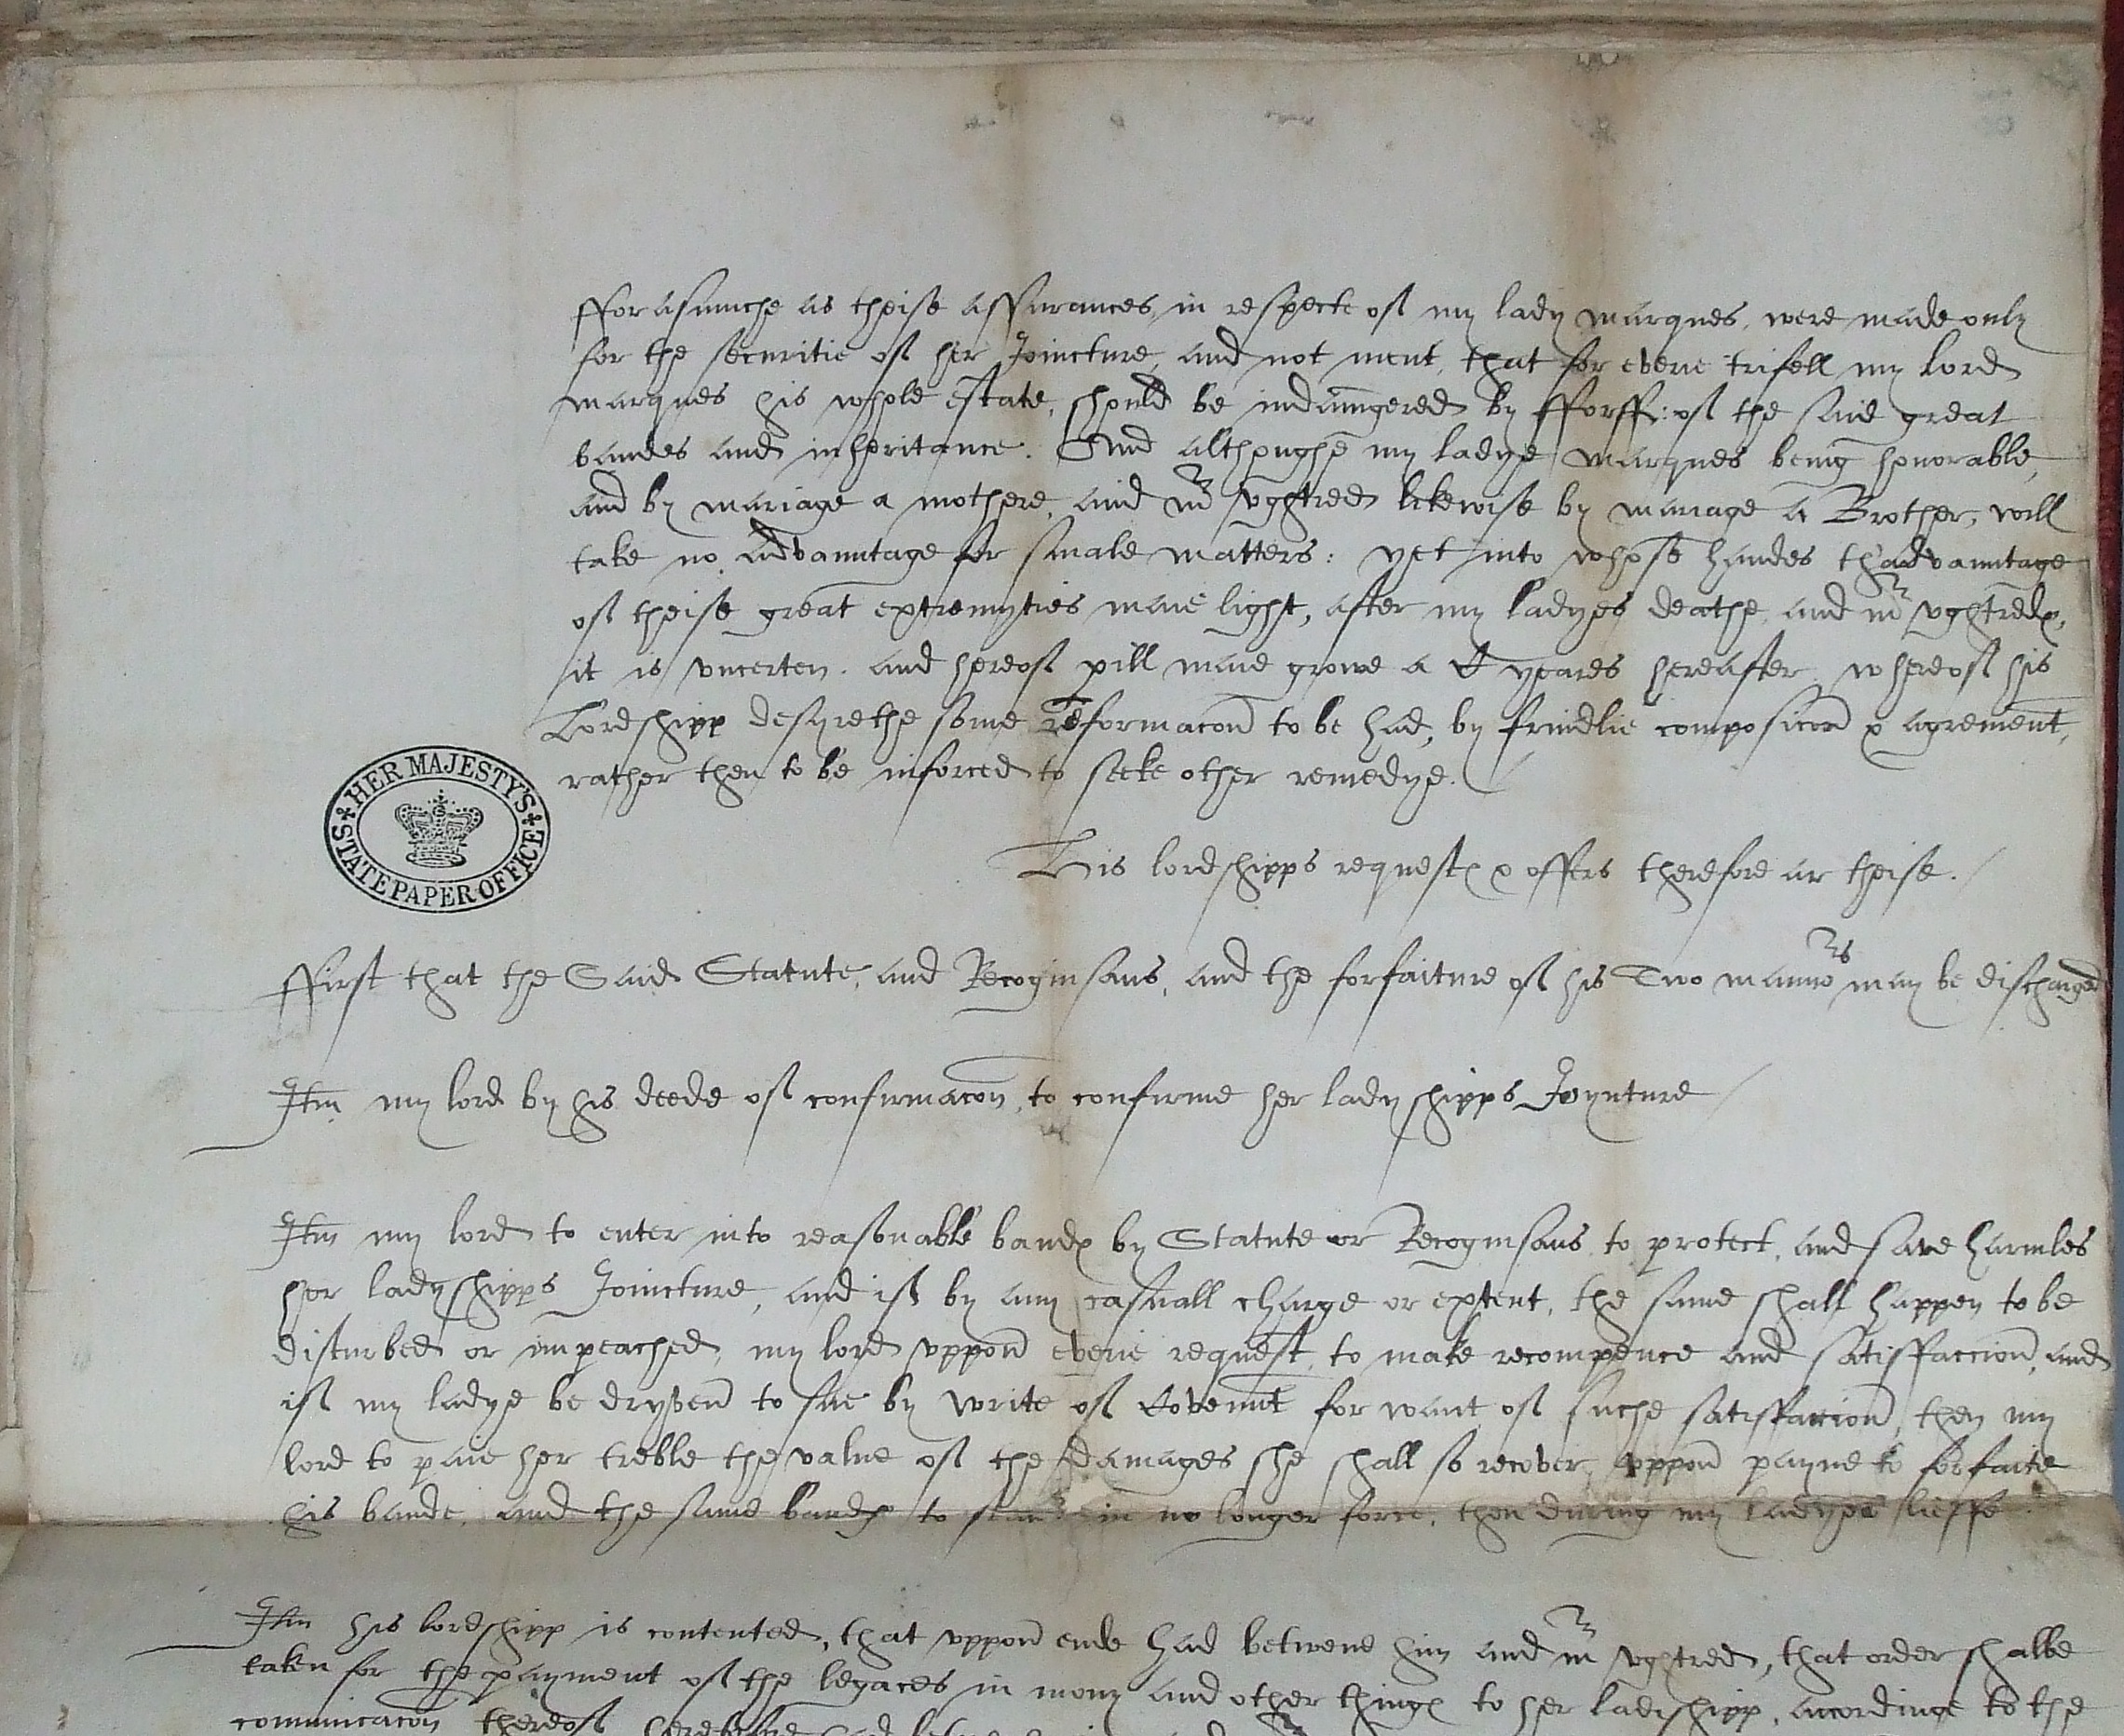 fforasmuche as theise assurances, in respecte of my lady marques, were made only
for the securitie of her Joincture, and not ment, that for everie trifell my lord
marques his whole estate, should be indaungered by fforff: of the said great
bandes and inheritance. And althoughe my ladye marques being honorable,
and by mariage a mothere, and mr Vghtred likewise by mariage a Brother, will
take no advauntage for smale matters: yet into whose handes thadvauntage
of theise great extremyties maie light, after my ladyes deathe, and mr vghtredes,
it is vncerten. and hereof pill maie growe a C yeares hereafter. whereof his
Lordshipp desyrethe some reformacon to be had, by frindlie composicon & agrement,
rather then to be inforced to seeke other remedye.
HER MAJESTY'S STATE PAPER OFFICE
His lordshipps requestes & offers therefore ar theise.
ffirst that the Said Statute, and Recognisans, and the forfaiture of his Two mannors may be discharged
Itm my lord by his deede of confirmacon, to confirme her ladyshipps Joynture
Itm my lord to enter into reasonable bandes by Statute or Recognisans to protect, and save harmles
her ladyshipps Joincture, and if by any casuall charge or extent, the same shall happen to be
disturbed or impeached, my lord vppon everie request, to make recompence and satisffaccion, and
if my ladye be dryven to sue by write of Covennt for want of suche satisffaccion, then my
lord to paie her treble the value of the damages she shall so recover, vppon payne to forfaite
his bande, and the same bandes to stand in no longer force, then during my ladyes lieffe
Itm his lordshipp is contented, that vppon ende had betwene him and mr vghtred, that order shalbe
taken for the payment of the legaces in mony and other thinges to her ladishipp, accordinge to the
communicacon thereof heretofore had